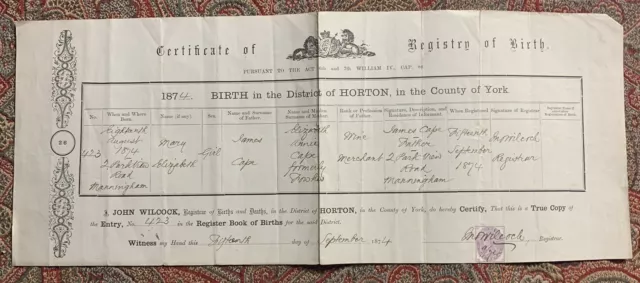 Certificate of Registry of Birth.
PURSUANT TO THE ACT 6th and 7th WILLIAM IV., CAP. 86
1874. BIRTH in the District of HORTON, in the County of York.
No.
When and Where Born.
Name (if any).
Sex.
Name and Surname of Father.
Name and Maiden Surname of Mother.
Rank or Profession of Father.
Signature, Description, and Residence of Informant.
When Registered.
Signature of Registrar.
423
Eighteenth
August
1874
2 Park View
Road
Manningham
Mary
Elizabeth
Girl
James
Cape
Elizabeth
Annie
Cape
formerly
Wine
Merchant
James Cape
Father
2 Park View
Road
Manningham
Fifteenth
September
1874
Jno Wilcock
Registrar
28
I, JOHN WILCOCK, Registrar of Births and Deaths, in the District of HORTON, in the County of York, do hereby Certify, That this is a True Copy of
the Entry, No. 423 in the Register Book of Births for the said District.
Witness my Hand this Fifteenth day of September 1874
Jno Wilcock, Registrar.